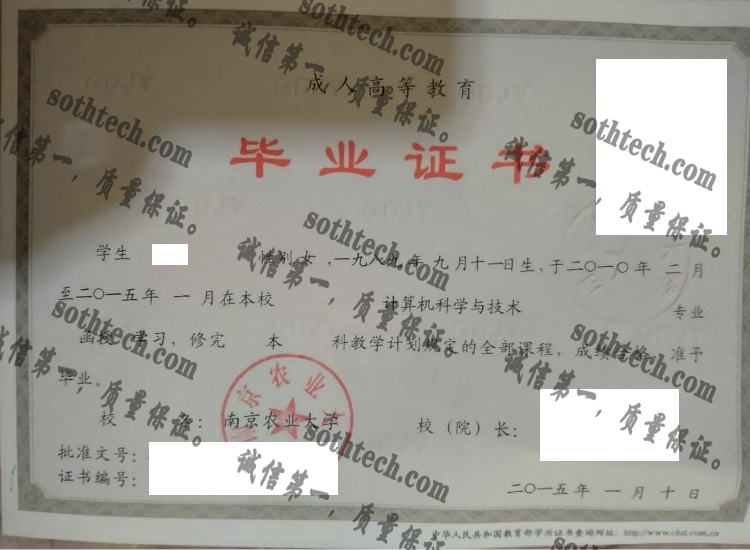 成人高等教育
毕业证书
学生 性别 女 ,一九八九年 九月十一日生,于二〇一〇年 二月
至二〇一五年 一月在本校 计算机科学与技术 专业
函授 学习,修完 本 科教学计划规定的全部课程,成绩合格,准予
毕业。
校 名: 南京农业大学 校(院)长:
批准文号:
证书编号:
二〇一五年 一月十日
中华人民共和国教育部学历证书查询网址: http://www.chsi.com.cn
南京农业大学
sothtech.com
诚信第一,质量保证。
sothtech.com
诚信第一,质量保证。
sothtech.com
诚信第一,质量保证。
sothtech.com
诚信第一,质量保证。
sothtech.com
诚信第一,质量保证。
sothtech.com
诚信第一,质量保证。
sothtech.com
诚信第一,质量保证。